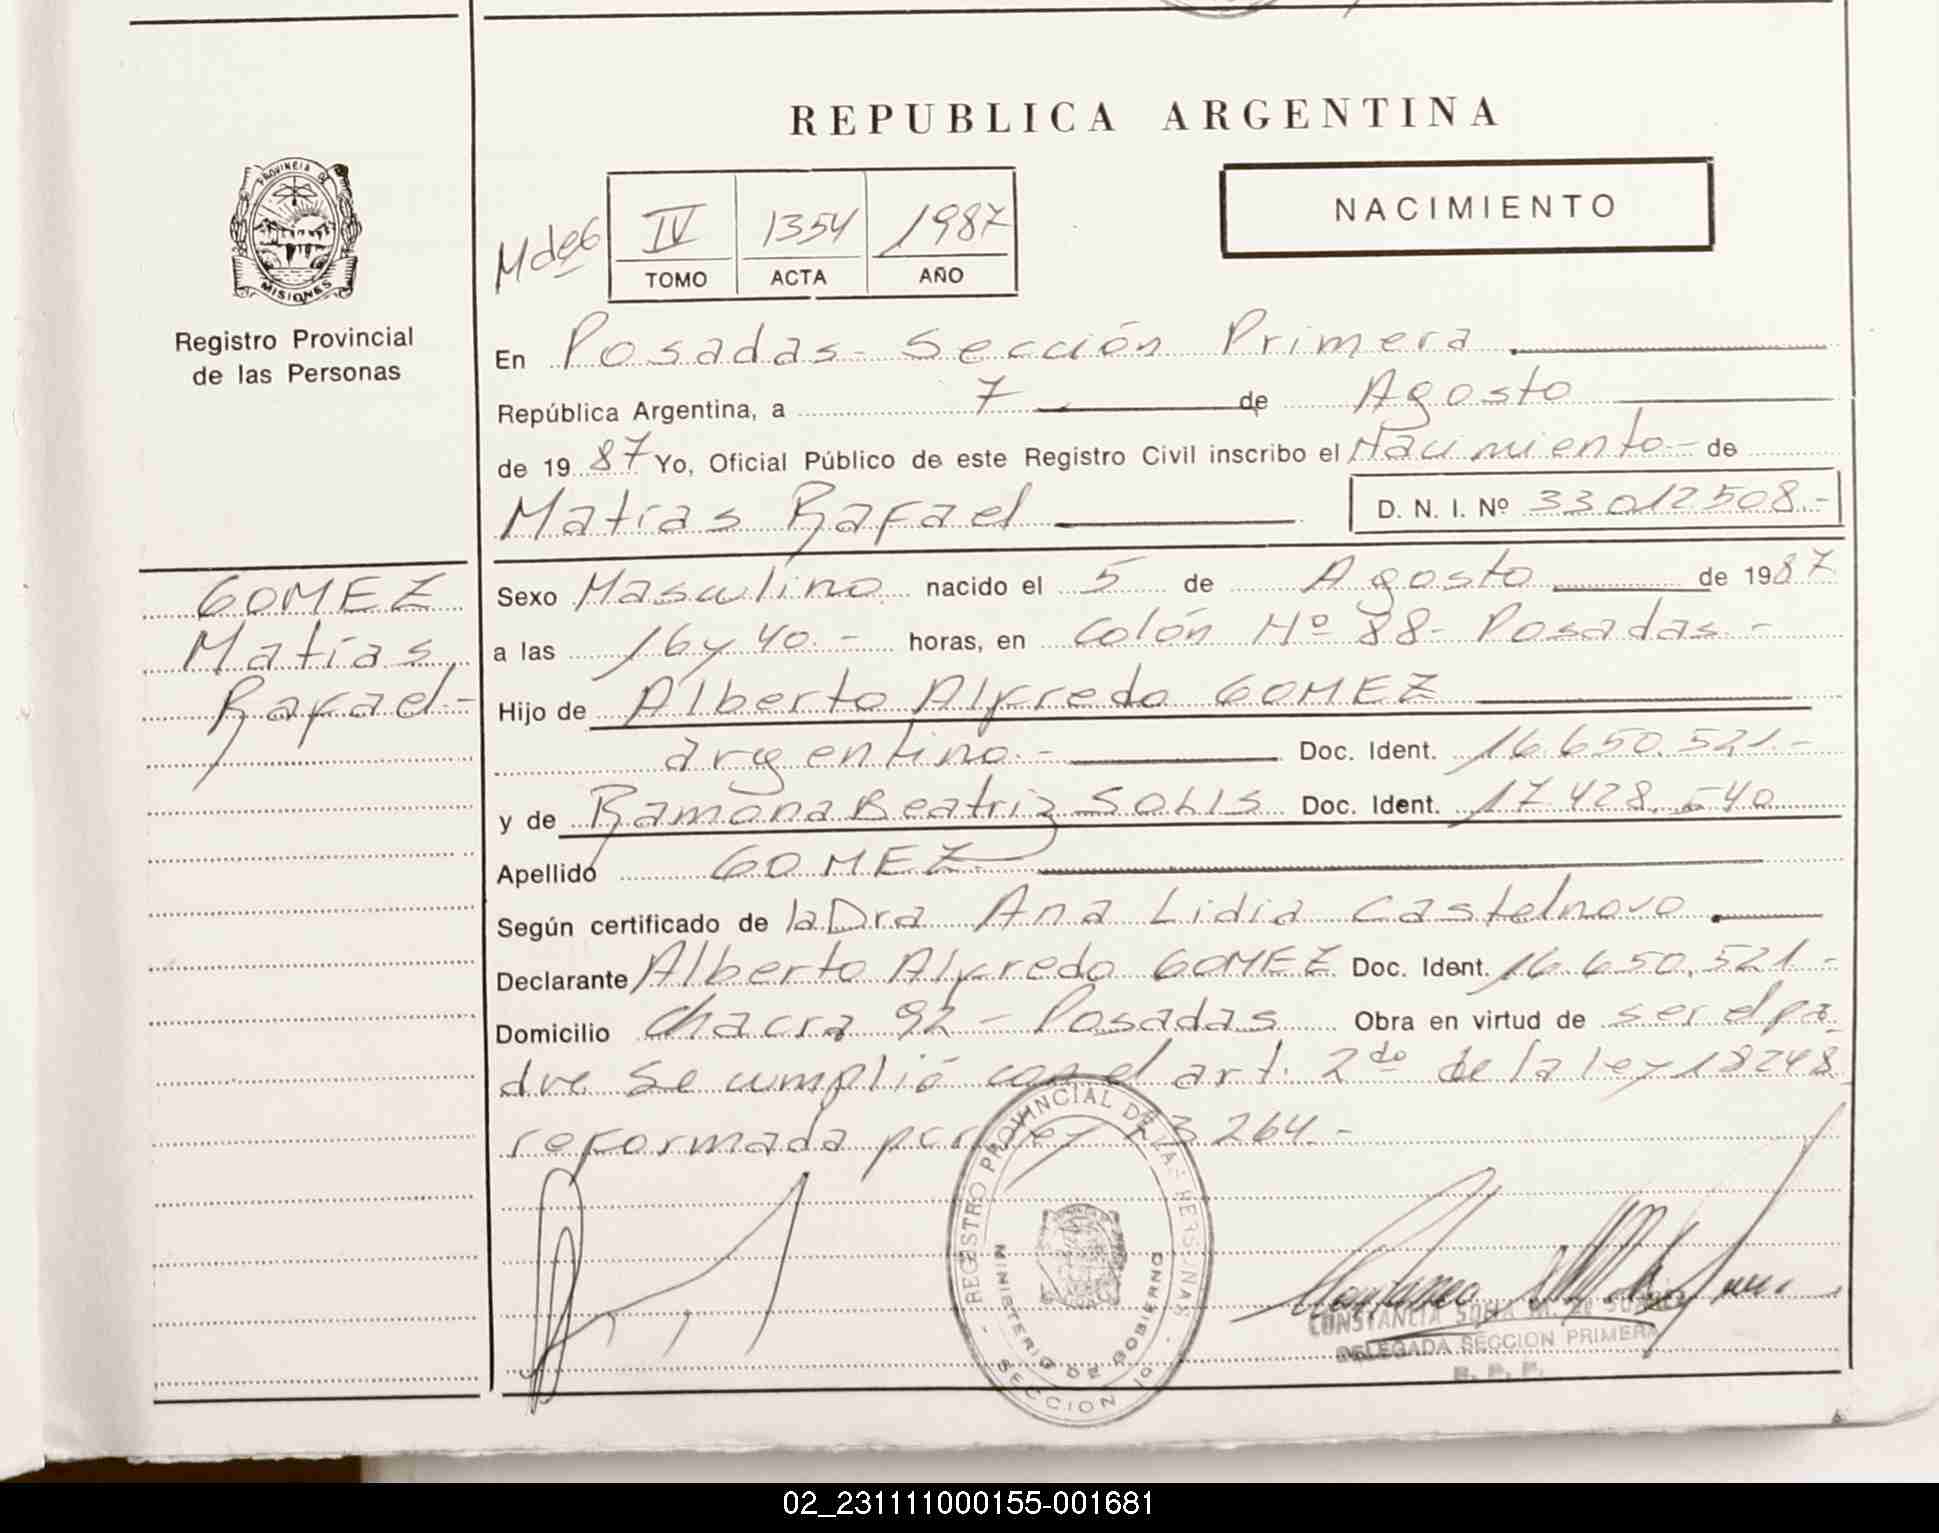 REPUBLICA ARGENTINA
NACIMIENTO
PROVINCIA DE
MISIONES
Registro Provincial
de las Personas
IV 1354 1987
TOMO ACTA AÑO
En Posadas - Sección Primera
República Argentina, a 7 de Agosto
de 1987 Yo, Oficial Público de este Registro Civil inscribo el Nacimiento - de
Matias Rafael D. N. I. Nº 33012508.-
GOMEZ
Matías
Rafael -
Sexo Masculino nacido el 5 de Agosto de 1987
a las 16 y 40.- horas, en Colón Nº 88 - Posadas -
Hijo de Alberto Alfredo GOMEZ
argentino.- Doc. Ident. 16.650.521.-
y de Ramona Beatriz SOLIS Doc. Ident. 17.428.540
Apellido GOMEZ
Según certificado de la Dra Ana Lidia Castelnovo
Declarante Alberto Alfredo GOMEZ Doc. Ident. 16.650.521.-
Domicilio Chacra 92 - Posadas Obra en virtud de ser el pa-
dre Se cumplió con el art. 2do de la ley 18248
reformada por ley 23264.-
REGISTRO PROVINCIAL DE LAS PERSONAS
MINISTERIO DE GOBIERNO
SECCION 1º
CONSTANCIA SOFIA M. de
DELEGADA SECCION PRIMERA
R. P. P.
02_231111000155-001681